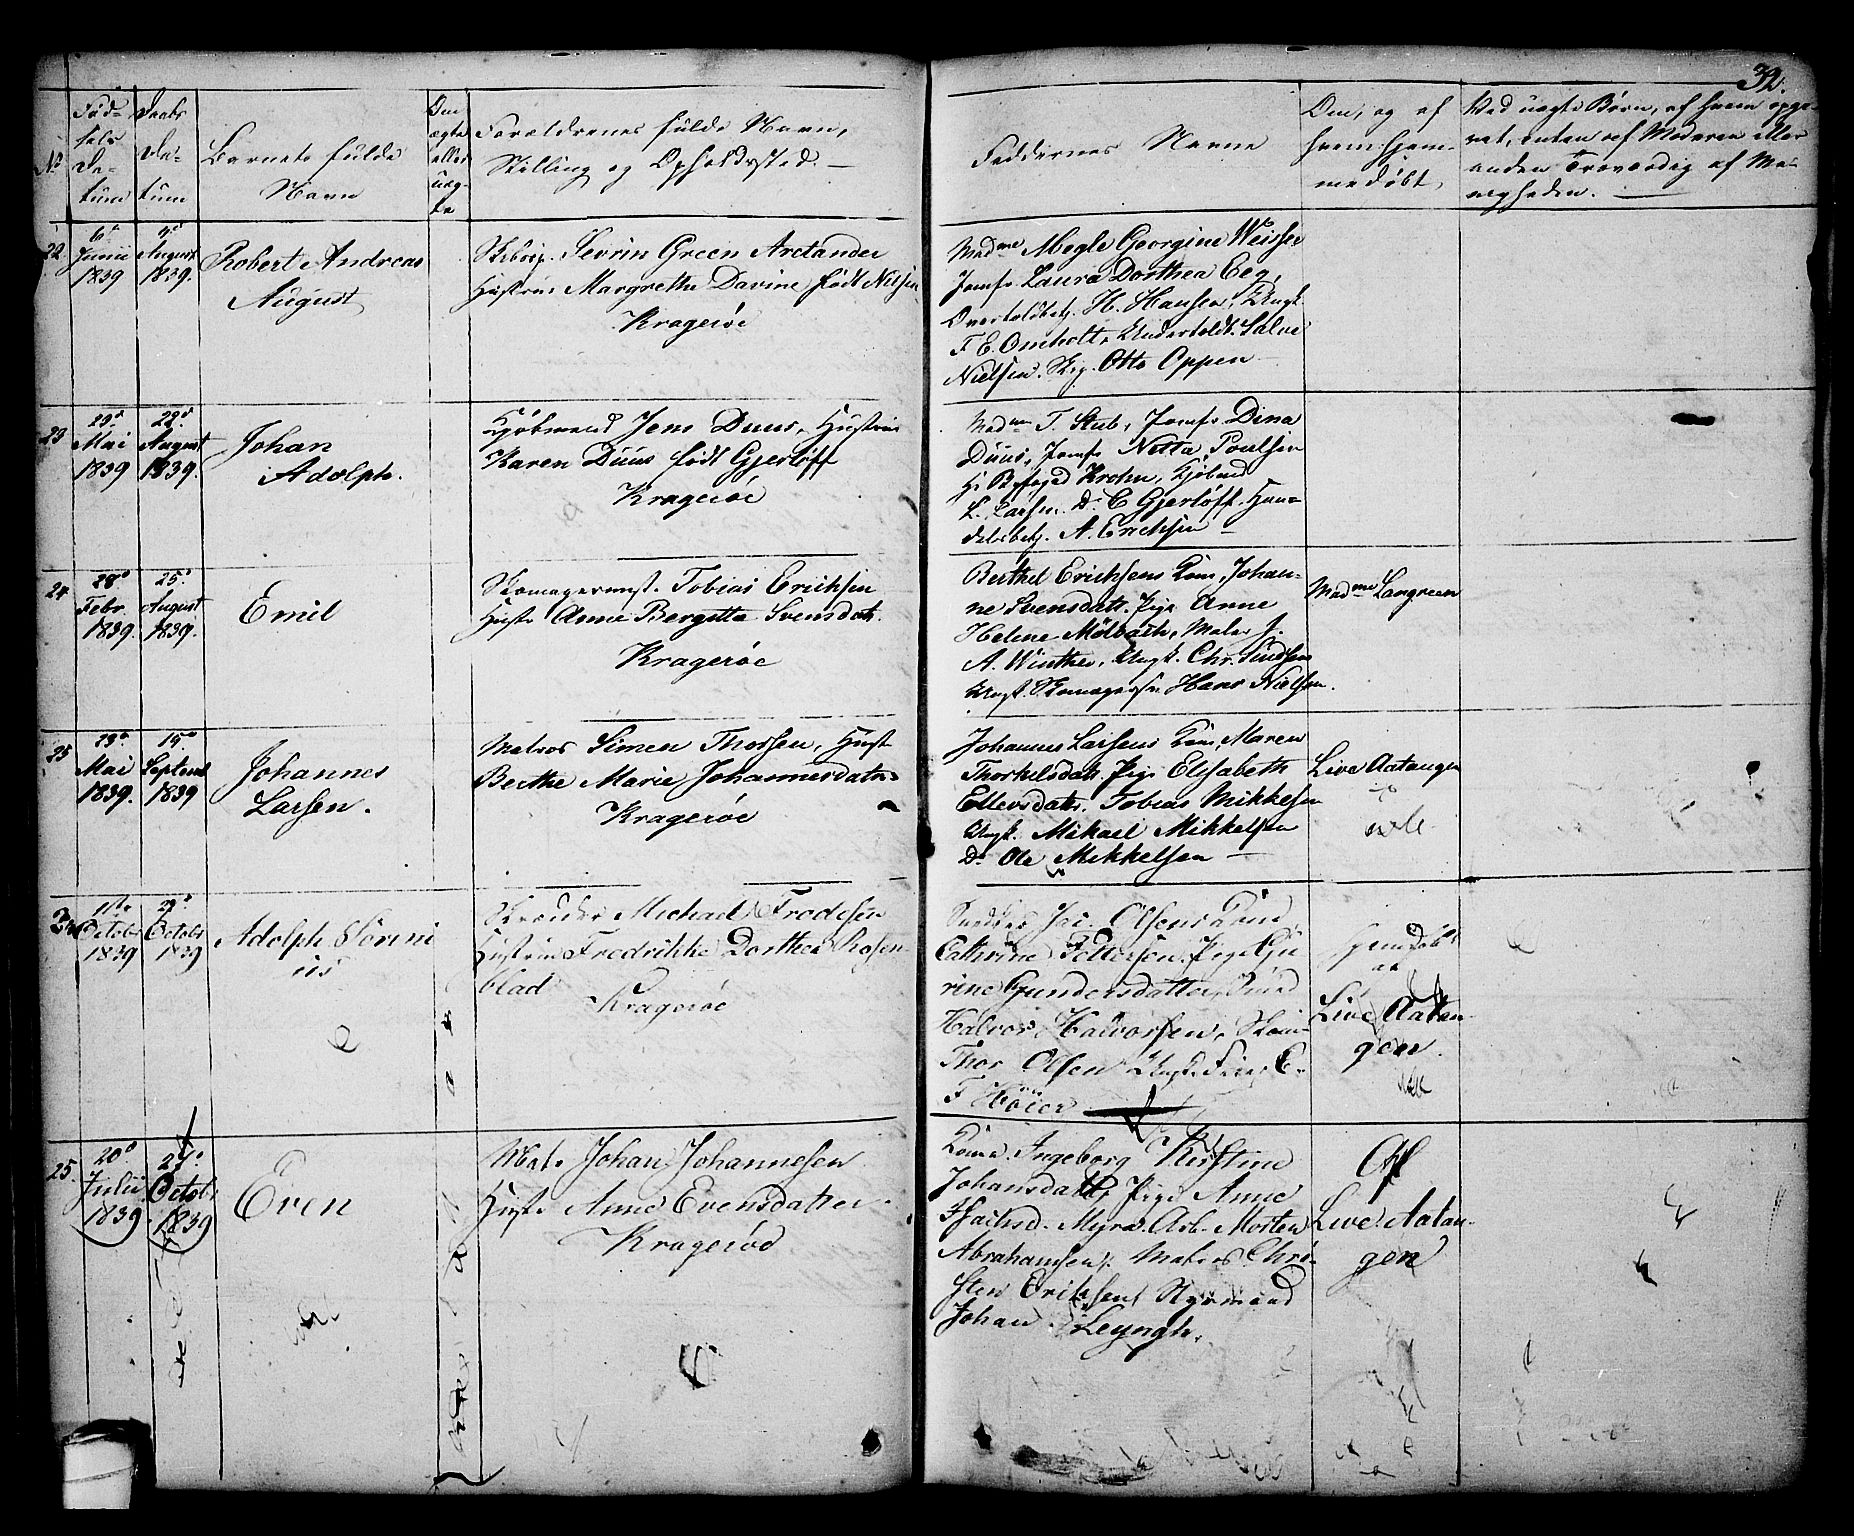 32.
No
Fød-
sels
Da-
tum
Daabs
Da-
tum
Barnets fulde
Navn
Om
ægte
eller
uæg-
te
Forældrenes fulde Navn,
Stilling og Opholdssted. —
Faddernes Navne
Om, og af
hvem hjem-
medøbt,
Ved uægte Børn, af hvem opgi-
vet, enten af Moderen eller
anden Troværdig af Me-
nigheden. —
22
6te
Junii
1839
August
1839.
Robert Andreas
August
Skibscp. Sevrin Green Arctander
Hustrue Margrethe Davine født Nielsen
Kragerøe
Madme Megle Georgine Weisser
Jomfr Laura Dorthea Eeg,
Overtoldbetj. H. Hansen, Ungk.
F E. Omholt, Undertoldb. Salve
Nielsen. Otto Oppen
23
23d
Mai
1839
22d
August
1839.
Johan
Adolph.
Kjøbmand Jens Duus, Hustrue
Karen Duus født Gjerløff
Kragerøe
Madme T. Stub, Jomfr Dina
Duus, Jomfr Netta Poulsen
Hr Byfoged Krohn, Kjøbmd
L. Larsen. Do C Gjerløff. Han-
delsbetj. A. Erichsen —
24
28d
Febr
1839.
25d
August
1839.
Emil
Skomagermst. Tobias Erichsen
Hustr Anne Bergitta Svensdatr.
Kragerøe
Berthel Erichsens Kone, Johan-
ne Svensdatr. Pige Anne
Helene Mølbach, Maler J.
A. Winther, Ungk. Chr. Knudsen
Ungk. Skomagersv. Hans Nielsen.
Madme Langreen
25
23d
Mai
1839.
15d
Septemb
1839
Johannes
Larsen.
Matros Simen Thorsen, Hustr
Berthe Marie Johannesdatr.
Kragerøe
Johannes Larsens Kone, Maren
Thorkelsdatr. Pige Elisabeth
Ellevsdatr. Tobias Mikkelsen
Ungk. Mikael Mikkelsen
Do Ole Mikkelsen —
Live Aatangen
11te
Octobr
1839
Octobr
1839
Adolph Sørini
us
Skræder Michael Frodesen
Hustrue Fredrikke Dorthea Rosen-
blad
Kragerøe
Snedker Jac. Olsens Kone
Cathrine Pettersen. Pige Gu
rine Gundersdatter, Smed
Halvor Halvorsen, Skom-
Thor Olsen Ungk. E.
F Høier
Hjemdøbt
af
Live Aatan-
gen.
25.
20d
Julii
1839
27d
Octobr
1839
Even
Mat. Johan Johannesen
Hustr Anne Evensdatter
Kragerøe
Kone Ingeborg Kirstine
Johansdatt, Pige Anne
Isachsd. Myra. Arb. Morten
Abrahamsen, Matros Chri-
sten Eriksen Styrmand
Johan Leyngh.
Af
Live Aatan-
gen